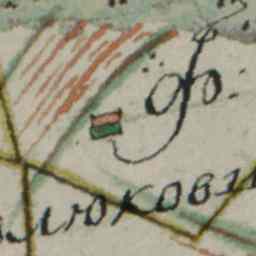 ф:
люкови